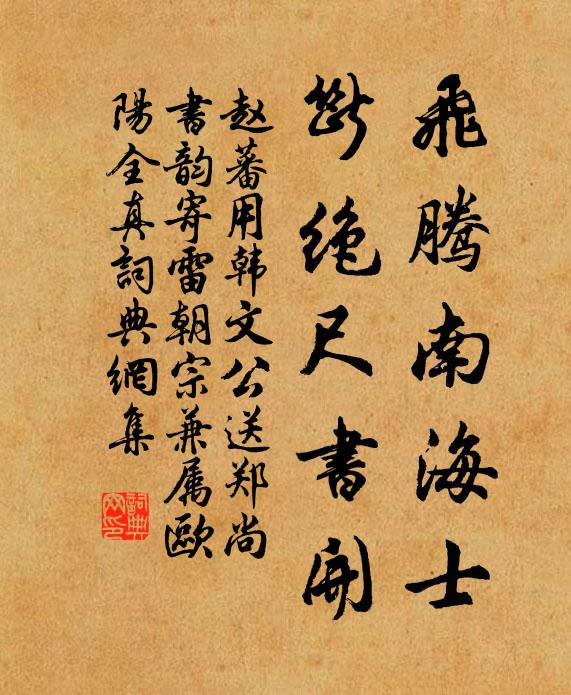 飛騰南海士
斷絕尺書開
赵蕃用韩文公送郑尚
書韵寄雷朝宗兼属歐
陽全真詞典網集
詞典網印